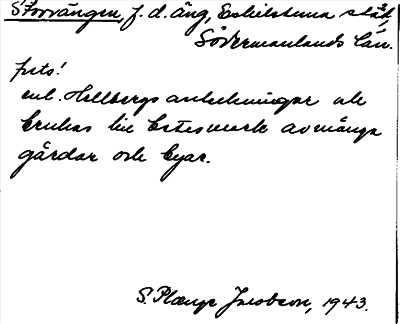 Storvängen, f.d. äng, Eskilstuna stad,
Södermanlands län.
enl. Hellbergs anteckningar och
brukas till betesmark av många
gårdar och byar.
S. Plænge Jacobson, 1943.